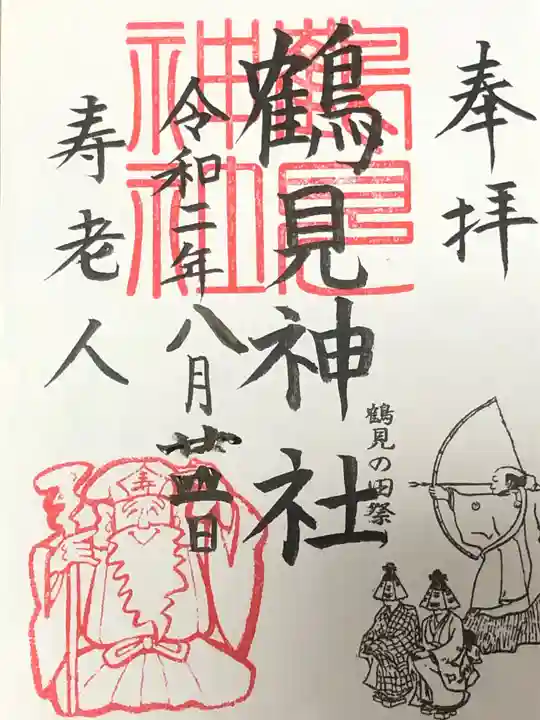 奉拝
鶴見神社
鶴見神社
鶴見の田祭り
令和二年八月廿日
寿老人
寿